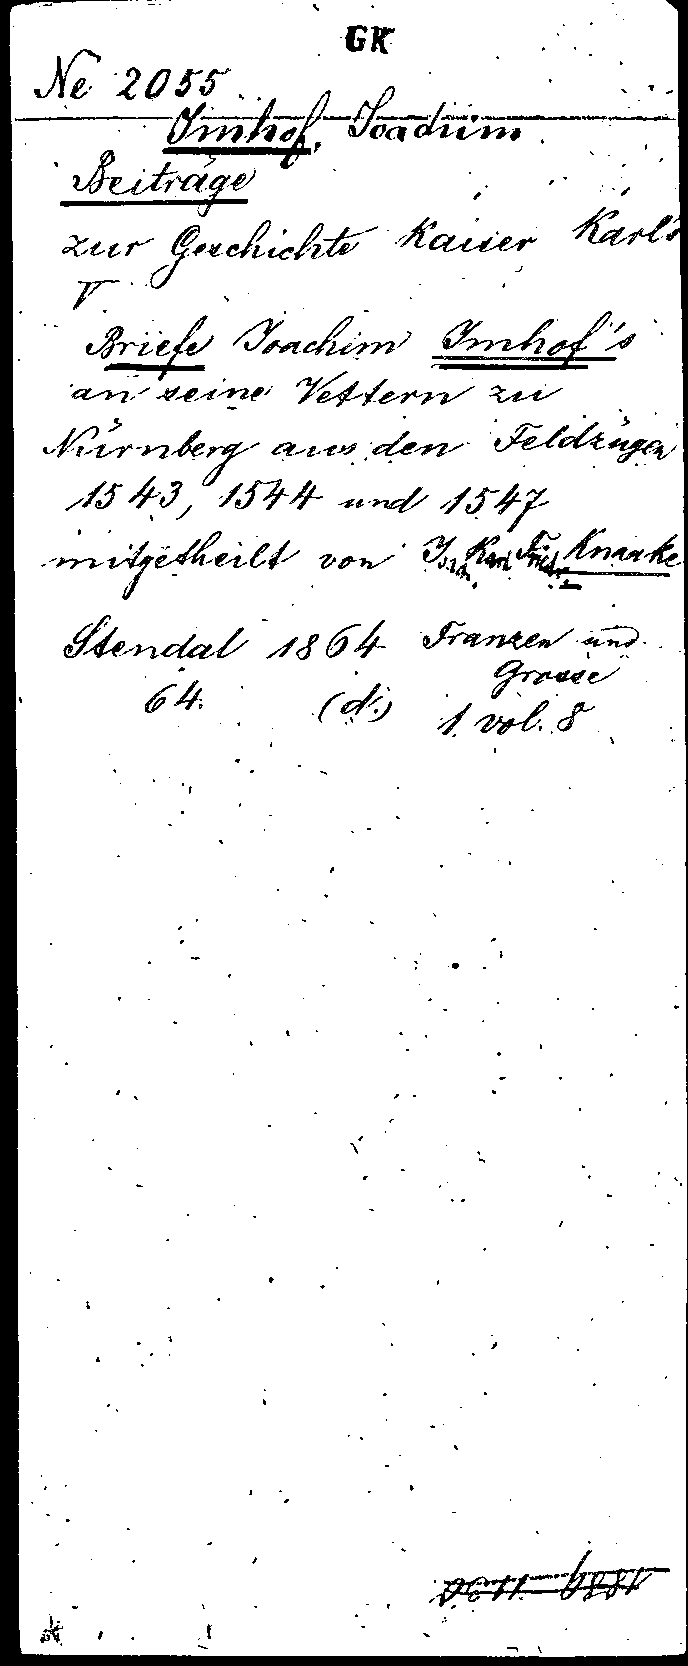 GK
Ne 2055
Imhof, Joachim
Beiträge
zur Geschichte Kaiser Karl's
V
Briefe Joachim Imhof's
an seine Vettern zu
Nürnberg aus den Feldzügen
1543, 1544 und 1547
mitgetheilt von Joach. Karl Friedr. Knaake
Stendal 1864 Franzen und
Grosse
64. (d.) 1 vol. 8